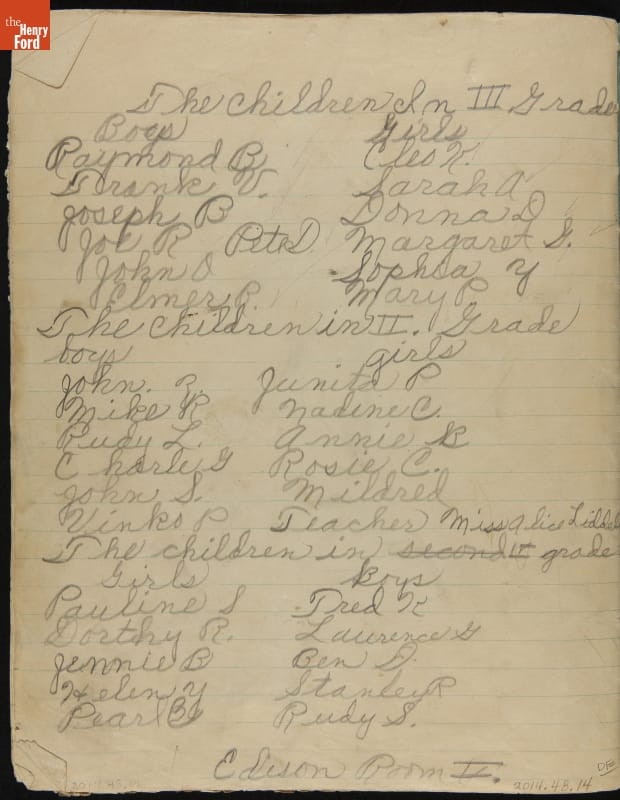 the Henry Ford
The children In III Grade
Boys Girls
Raymond B. Cleo K.
Frank V. Sarah A
Joseph B Donna D
Joe R Pete D. Margaret G.
John O Sophia Y
Elmer P. Mary P.
The children in II. Grade
boys girls
John. Z. Junita P
Mike K Nadine C.
Rudy L. Annie B
Charle G Rosie C.
John S. Mildred
Vinko P Teacher Miss Alice Liddel
The children in second grade
Girls Boys
Pauline S Fred K
Dorthy R. Laurence G
Jennie B Ben D.
Helen Y Stanley R
Pearl B Rudy S.
Edison Room II.
2014.48.14
DF